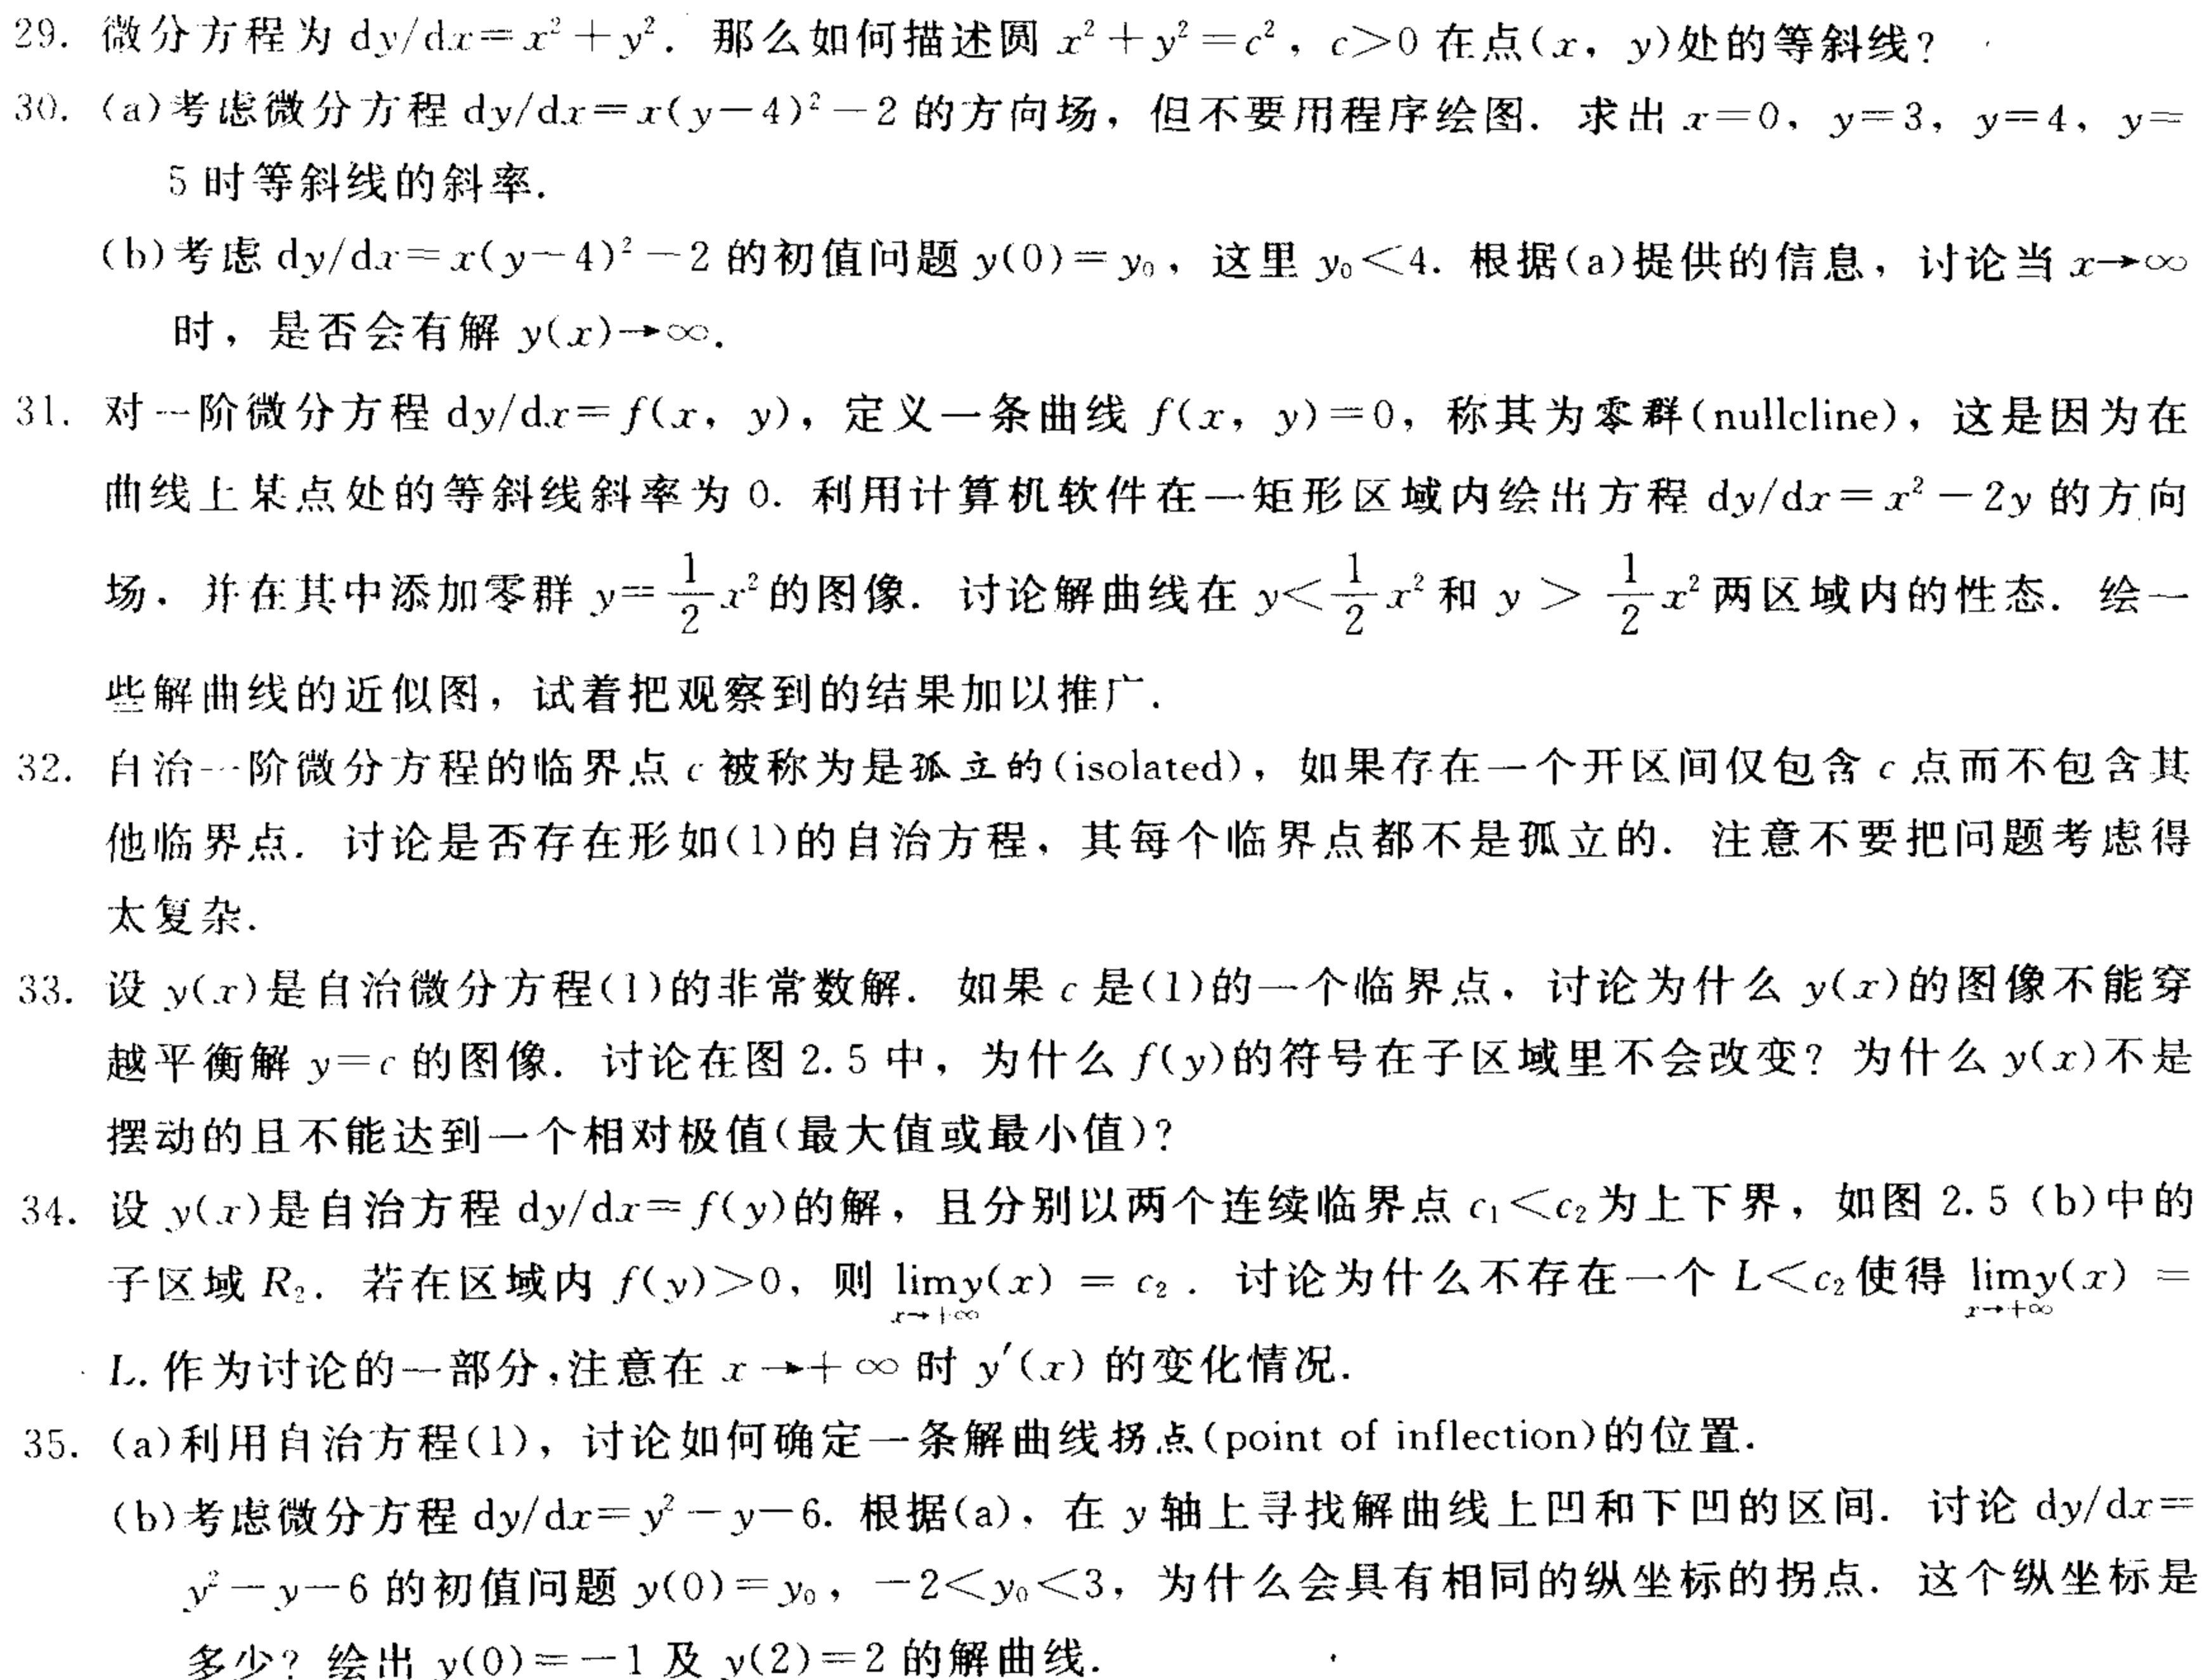 29. 微分方程为 dy/dx=x²+y². 那么如何描述圆 x²+y²=c², c>0 在点(x, y)处的等斜线?
30. (a)考虑微分方程 dy/dx=x(y-4)²-2 的方向场, 但不要用程序绘图. 求出 x=0, y=3, y=4, y=
5 时等斜线的斜率.
(b)考虑 dy/dx=x(y-4)²-2 的初值问题 y(0)=y₀, 这里 y₀<4. 根据(a)提供的信息, 讨论当 x→∞
时, 是否会有解 y(x)→∞.
31. 对一阶微分方程 dy/dx=f(x, y), 定义一条曲线 f(x, y)=0, 称其为零群(nullcline), 这是因为在
曲线上某点处的等斜线斜率为 0. 利用计算机软件在一矩形区域内绘出方程 dy/dx=x²-2y 的方向
场. 并在其中添加零群 y=1/2 x² 的图像. 讨论解曲线在 y<1/2 x² 和 y > 1/2 x² 两区域内的性态. 绘一
些解曲线的近似图, 试着把观察到的结果加以推广.
32. 自治一阶微分方程的临界点 c 被称为是孤立的(isolated), 如果存在一个开区间仅包含 c 点而不包含其
他临界点. 讨论是否存在形如(1)的自治方程, 其每个临界点都不是孤立的. 注意不要把问题考虑得
太复杂.
33. 设 y(x)是自治微分方程(1)的非常数解. 如果 c 是(1)的一个临界点, 讨论为什么 y(x)的图像不能穿
越平衡解 y=c 的图像. 讨论在图 2.5 中, 为什么 f(y)的符号在子区域里不会改变? 为什么 y(x)不是
摆动的且不能达到一个相对极值(最大值或最小值)?
34. 设 y(x)是自治方程 dy/dx=f(y)的解, 且分别以两个连续临界点 c₁<c₂ 为上下界, 如图 2.5 (b)中的
子区域 R₂. 若在区域内 f(y)>0, 则 lim y(x) = c₂ . 讨论为什么不存在一个 L<c₂ 使得 lim y(x) =
x→+∞ x→+∞
L. 作为讨论的一部分,注意在 x→+∞ 时 y′(x) 的变化情况.
35. (a)利用自治方程(1), 讨论如何确定一条解曲线拐点(point of inflection)的位置.
(b)考虑微分方程 dy/dx=y²-y-6. 根据(a), 在 y 轴上寻找解曲线上凹和下凹的区间. 讨论 dy/dx=
y²-y-6 的初值问题 y(0)=y₀, -2<y₀<3, 为什么会具有相同的纵坐标的拐点. 这个纵坐标是
多少? 绘出 y(0)=-1 及 y(2)=2 的解曲线.